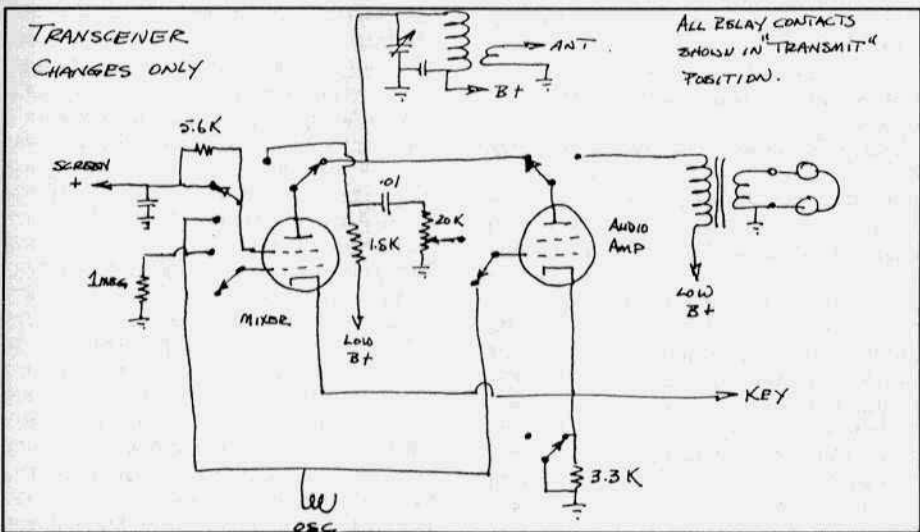 TRANSCEIVER
CHANGES ONLY
ALL RELAY CONTACTS
SHOWN IN "TRANSMIT"
POSITION.
ANT.
B+
5.6K
SCREEN
+
.01
20K
1.8K
1MEG
MIXER
LOW
B+
AUDIO
AMP
LOW
B+
KEY
3.3K
OSC